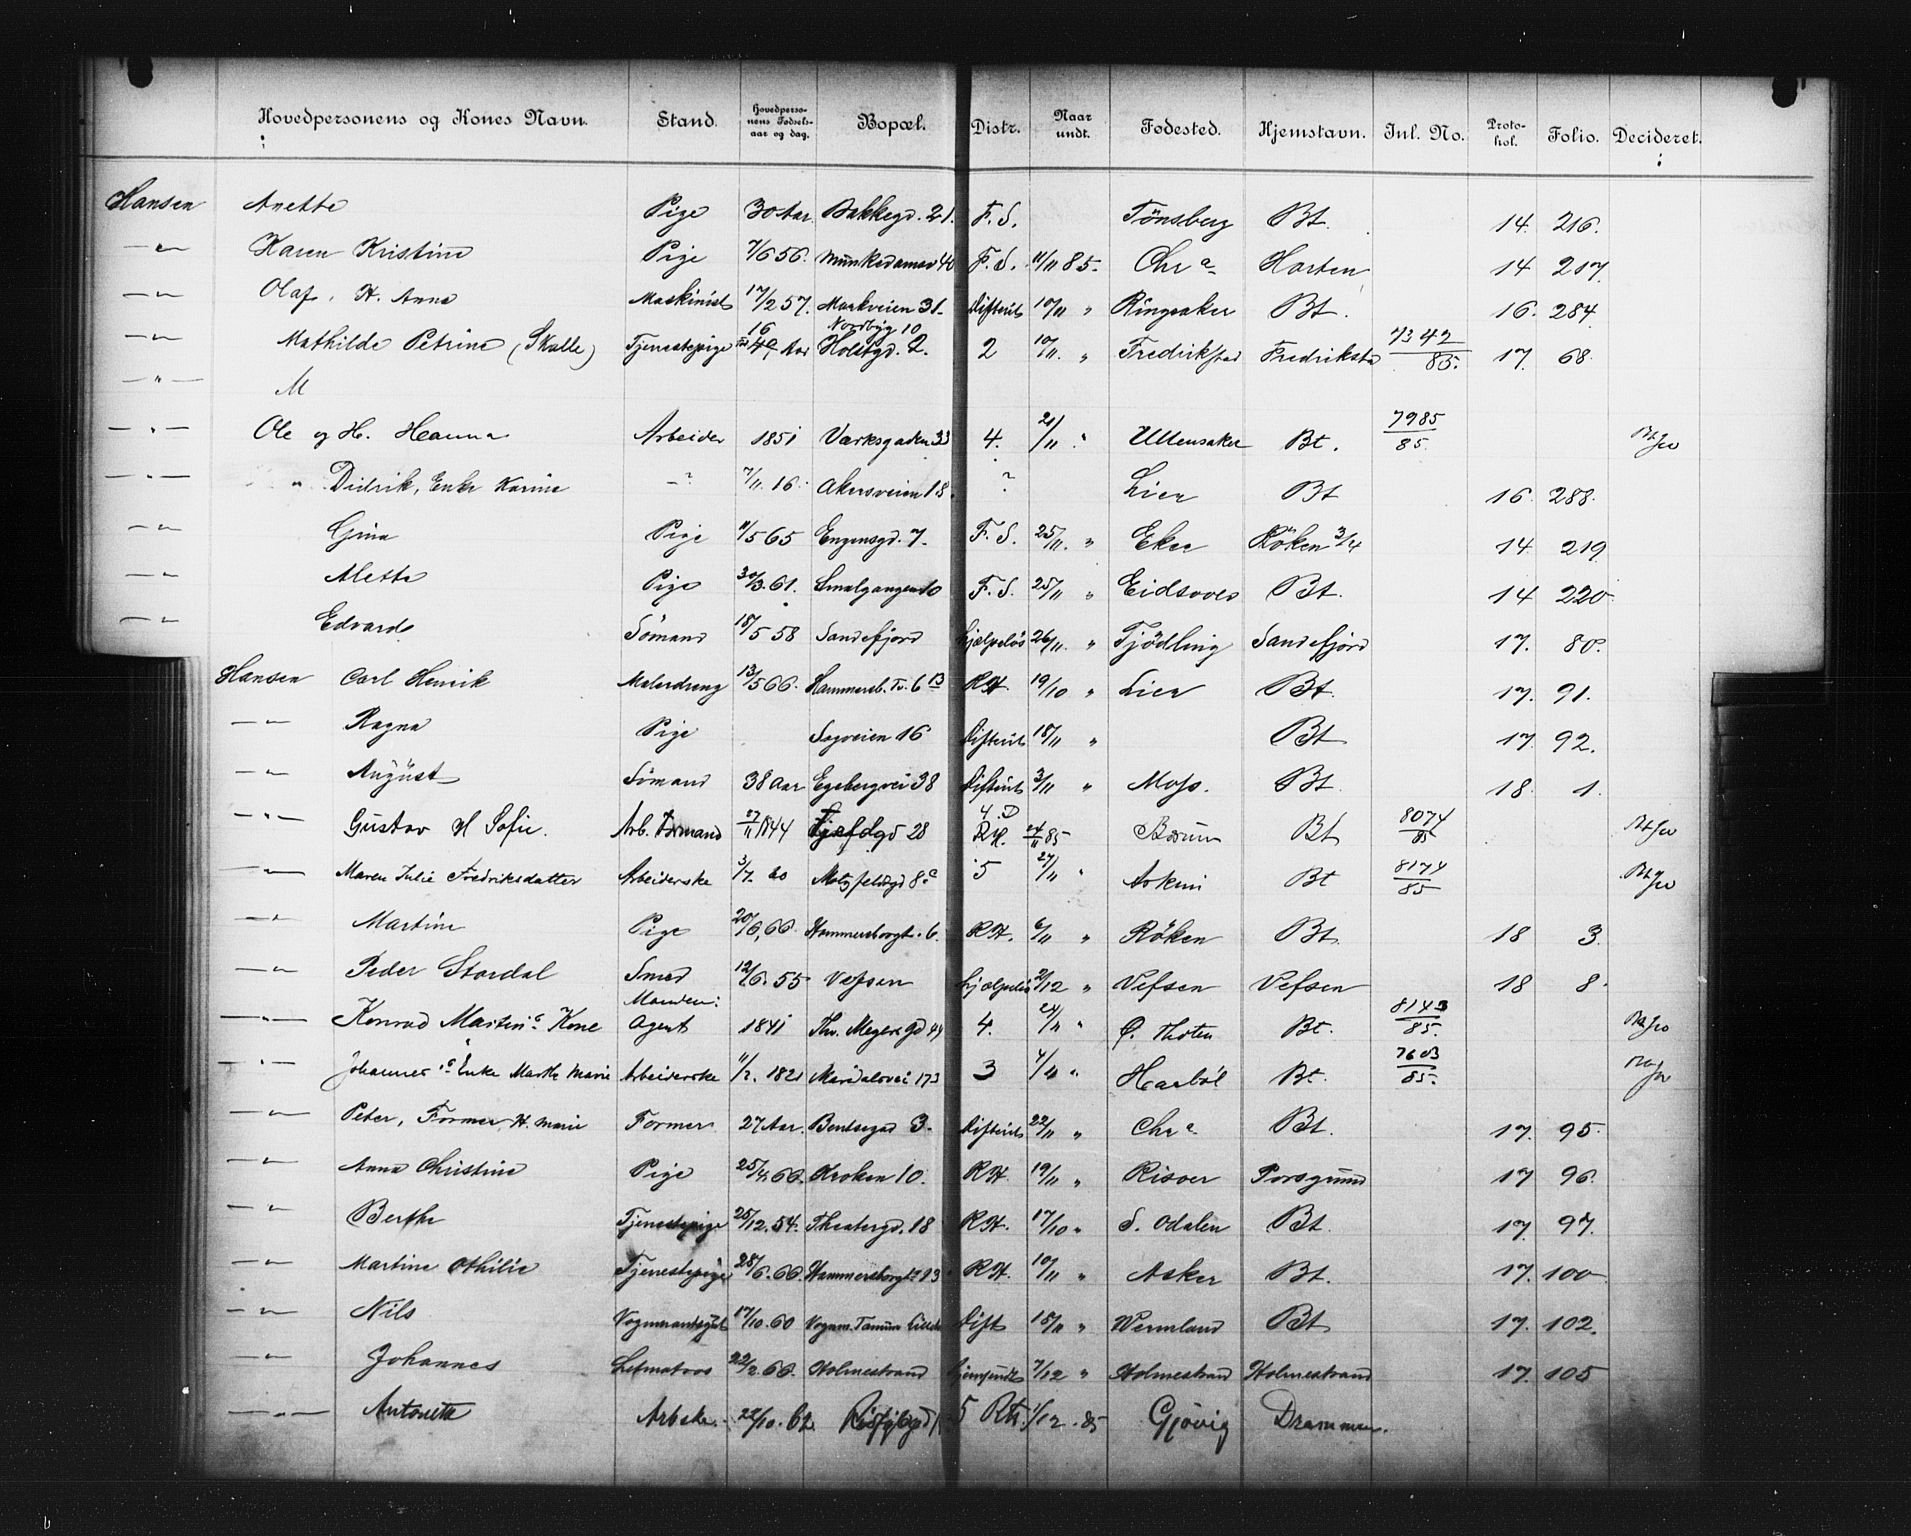 Hovedpersonens og Kones Navn. Stand. Hovedperso-nens Fødsels-aar og dag. Bopæl. Distr. Naar undt. Fødested. Hjemstavn. Jnl. No. Proto-kol. Folio. Decideret.
Hansen Anette Pige 30 Aar Bakkegd. 21. F. S. Tönsberg Bt. 14. 216.
—"— Karen Kristine Pige 7/6 56. Munkedamsv 40 F. S. 11/11 85. Chr a Horten 14 217
—"— Olaf, H. Anna Maskinist 17/2 57. Markveien 31. Difterit 10/11 " Ringsaker Bt. 16. 284
—"— Mathilde Petrine (Skalle) Tjenestepige 40 Aar Nordbyg 10 Holstgd. 2. 2 10/11. " Fredrikstad Fredriksta 7342/85. 17. 68.
—"— M
—"— Ole og H. Hanna Arbeider 1851 Værksgaden 33 4. 21/11 " Ullensaker Bt. 7985/85
—"— " Didrik, Enke Karine —"— 7/11. 16. Akersveien 18. ? Lier Bt 16. 288.
—"— Gina Pige 11/5 65 Engensgd. 7. F. S. 25/11. " Eker Röken 3/4 14. 219
—"— Alette Pige 30/3. 61. Smalgangen 10 F. S. 25/11 " Eidsvold Bt. 14 220
—"— Edvard Sömand 18/5 58 Sandefjord Hjælpelös 26/11. " Tjödling Sandefjord 17. 80.
Hansen Carl Henrik Malerdreng 13/5 66. Hammersb. Tv. 6 13 RH. 19/10 " Lier Bt. 17. 91.
—"— Ragna Pige Sagveien 16 Difterit 18/11 " Bt 17. 92.
—"— August Sömand 38 Aar Egebergvei 38 Difterit 3/11 " Moss. Bt. 18. 1.
—"— Gustav H Sofie. Arb. Formand 27/11 1844 28 4. D RH. 24/11 85 Bærum Bt 8074/85
—"— Maren Julie Fredriksdatter Arbeiderske 3/7. 20 Motzfeldtsgd 8 c 5 27/11 " Askim Bt 8174/85
—"— Martine Pige 20/6. 66. Hammersborgt. 6. RH. 6/11 " Röken Bt. 18 3.
—"— Peder Stordal Smed 12/6. 55. Vefsen Hjælpelös 2/12 " Vefsen Vefsen 18 8.
—"— Konrad Martins Kone Manden: Agent 1841 Thv. Meyers gd 44 4. 24/11 " Ø. Thoten Bt. 8143/85.
—"— Johannes's Enke Marthe Marie Arbeiderske 11/2. 1821 Maridalsvei 173 3 4/11 " Bt. 7603/85.
—"— Peter, Former, H. Marie Former 27 Aar. Bentsegad 3. Difterit 22/11 " Chr a Bt. 17. 95.
—"— Anna Christine Pige 25/4. 66. Kroken 10. RH. 19/11 " Risøer Porsgrund 17 96.
—"— Berthe Tjenestepige 25/12. 54. Theatergd. 18 RH. 17/10 " S. Odalen Bt. 17. 97.
—"— Martine Othilie Tjenestepige 28/6. 66. Hammersborgt 13 RH. 10/11 " Asker Bt. 17. 100
—"— Nils Vognmandsgut 17/10. 60 Vognm. Dift 18/11 " Wermland Bt 17. 102.
—"— Johannes Letmatros 22/2. 66. Holmestrand Hjemsendt 7/12 " Holmestrand Holmestrand 17. 105
—"— Antonette Arbske. 22/10. 62. 5 RH. 1/12 . 85 Gjövig Drammen.